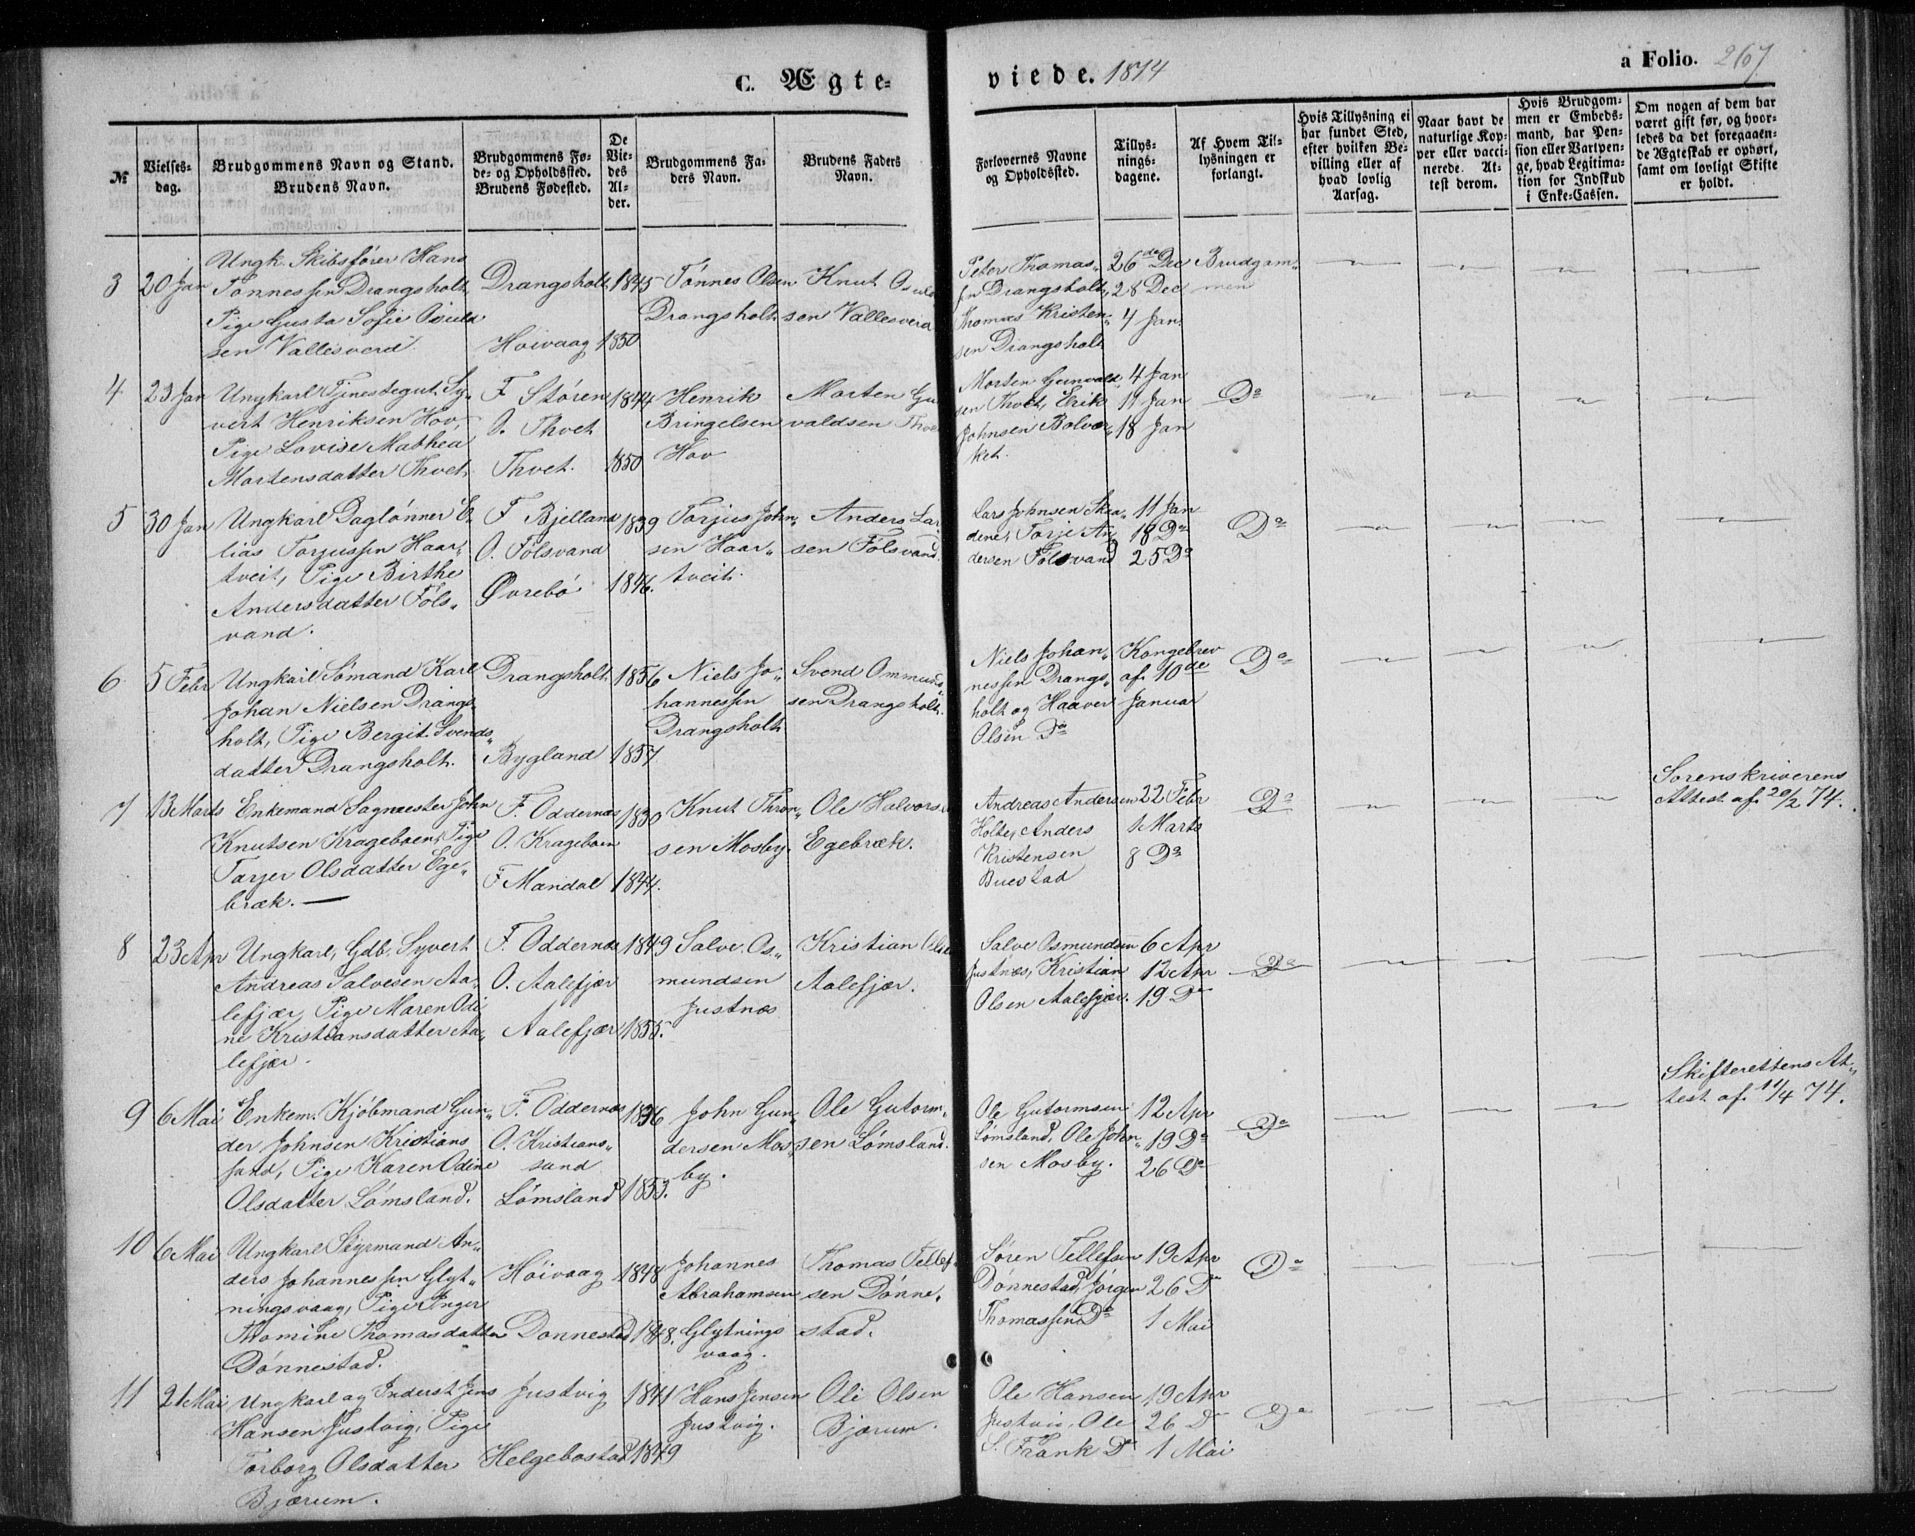 C. Ægte-
viede. 1874
a Folio. 267
№
Vielses-
dag.
Brudgommens Navn og Stand.
Brudens Navn.
Brudgommens Fø-
de- og Opholdssted.
Brudens Fødested.
De
Vie-
des
Al-
der.
Brudgommens Fa-
ders Navn.
Brudens Faders
Navn.
Forlovernes Navne
og Opholdssted.
Tillys-
nings-
dagene.
Af Hvem Til-
lysningen er
forlangt.
Hvis Tillysning ei
har fundet Sted,
efter hvilken Be-
villing eller af
hvad lovlig
Aarsag.
Naar havt de
naturlige Kop-
per eller vacci-
nerede. At-
test derom.
Hvis Brudgom-
men er Embeds-
mand, har Pen-
sion eller Vartpen-
ge, hvad Legitima-
tion for Indskud
i Enke-Cassen.
Om nogen af dem har
været gift før, og hvor-
ledes da det foregaaen-
de Ægteskab er ophørt,
samt om lovligt Skifte
er holdt.
3
20 Jan
Ungk. Skibsfører Hans
Tønnessen Drangsholt,
Pige Gusta Sofie Osuld
sen Vallesverd
Drangsholt
Høivaag
1845
1850
Tønnes Olsen
Drangsholt
Knut Osuld
sen Vallesverd
Peter Thomas„
sen Drangsholt,
Thomas Kristen„
sen Drangsholt
26de Dec
28 Dec
4 Jan
Brudgom„
men
4
23 Jan
Ungkarl Tjenestegut Sy„
vert Henriksen Hov,
Pige Lovise Mathea
Mortensdatter Thvet
F. Støren
O. Thvet
Thvet.
1844
1850
Henrik
Bringelsen
Hov
Morten Gu
valdsen Thvet
Morten Gunvald„
sen Thvet, Erik
Johnsen Bolvær„
ket.
4 Jan
11 Jan
18 Jan
Do
5
30 Jan
Ungkarl Daglønner E„
lias Torjussen Haar„
tveit, Pige Birthe
Andersdatter Føls„
vand.
F. Bjelland
O. Følsvand
Øvrebø
1839
1846.
Torjus John„
sen Haar„
tveit.
Anders Lar
sen Følsvand.
Lars Johnsen Skaa„
dene, Torje An„
dersen Følsvand
11 Jan
18 Do
25 Do
Do
6
5 Febr
Ungkarl Sømand Karl
Johan Nielsen Drangs„
holt, Pige Bergit Svends„
datter Drangsholt.
Drangsholt
Bygland
1856
1857
Niels Jo„
hannessen
Drangsholt
Svend Ommund„
sen Drangsholt.
Niels Johan„
nessen Drangs„
holt og Haaver
Olsen Do
Kongebrev
af 10de
Januar
Do
7
13 Marts
Enkemand Sagmester John
Knutsen Krageboen, Pige
Tarjer Olsdatter Ege„
bræk.
F. Oddernæs
O. Krageboen
F. Mandal
1830
1844.
Knut Thron„
sen Mosby.
Ole Halvors
Egebræk.
Andreas Andersen
Holte, Anders
Kristensen
Buestad
22 Febr
1 Marts
8 Do
Do
Sorenskriverens
Attest af 20/2 74.
8
23 Apr
Ungkarl, Gdb. Syvert
Andreas Salvesen Aa„
lefjær, Pige Maren Odi„
ne Kristiansdatter Aa„
lefjær.
F. Oddernæs
O. Aalefjær
Aalefjær
1849
1855.
Salve Os„
mundsen
Justnæs
Kristian Olsen
Aalefjær.
Salve Osmundsen
Justnæs, Kristian
Olsen Aalefjær.
6 Apr
12 Apr
19 Do
Do
9
6 Mai
Enkem. Kjøbmand Gun„
der Johnsen Kristians
sand, Pige Karen Odine
Olsdatter Lømsland.
F. Oddernæs
O. Kristians„
sand
Lømsland
1836
1853.
John Gun„
dersen Mos„
by.
Ole Gutorm„
sen Lømsland.
Ole Gutormsen
Lømsland, Ole John„
sen Mosby.
12 Apr
19 Do
26 Do
Do
Skifterettens At„
test af 11/4 74.
10
6 Mai
Ungkarl Styrmand An„
ders Johannessen Glyt„
ningsvaag, Pige Inger
Thomine Thomasdatter
Dønnestad.
Høivaag
Dønnestad
1848
1848.
Johannes
Abrahamsen
Glytnings
vaag.
Thomas Tellef„
sen Dønne„
stad.
Søren Tellefsen
Dønnestad, Jørgen
Thomassen Do
19 Apr
26 Do
1 Mai
Do
11
21 Mai
Ungkarl og Inderst Jens
Hansen Justvig, Pige
Torborg Olsdatter
Bjærum.
Justvig
Helgebostad
1841
1849
Hans Jensen
Justvig.
Ole Olsen
Bjærum.
Ole Hansen
Justvig, Ole
S. Frank Do
19 Apr
26 D
1 Mai
Do